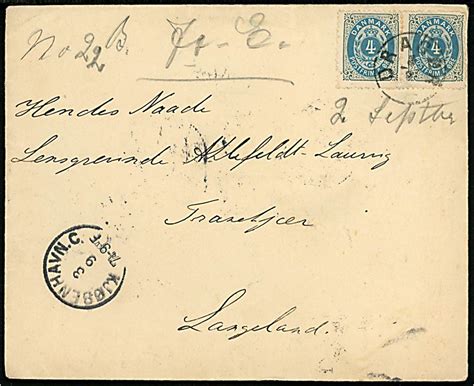 No 22 B.
DANMARK
4
POSTFRIM
DANMARK
4
POSTFRIM
DRAG
2 Septbr
Hendes Naade
Lensgrevinde Ahlefeldt-Laurvig
Tranekjær
KJØBENHAVN.C.
9 3
Langeland.